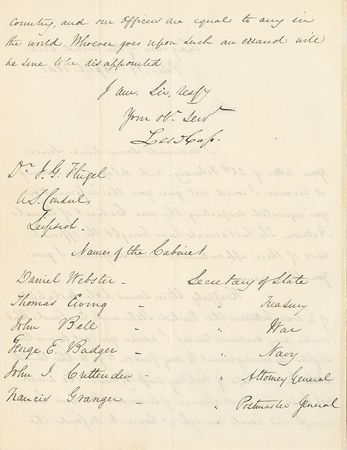 country, and our Officers are equal to any in
the world. Whoever goes upon such an errand will
be sure to be disappointed.
I am. Sir, resfy
Your obt. Servt
Lew Cass.
Dr. J. G. Flugel
U.S. Consul,
Leipsich.
Names of the Cabinet
Daniel Webster - Secretary of State
Thomas Ewing - " Treasury
John Bell - " War
George E. Badger - " Navy
John J. Crittenden - " Attorney General
Francis Granger - " Postmaster General